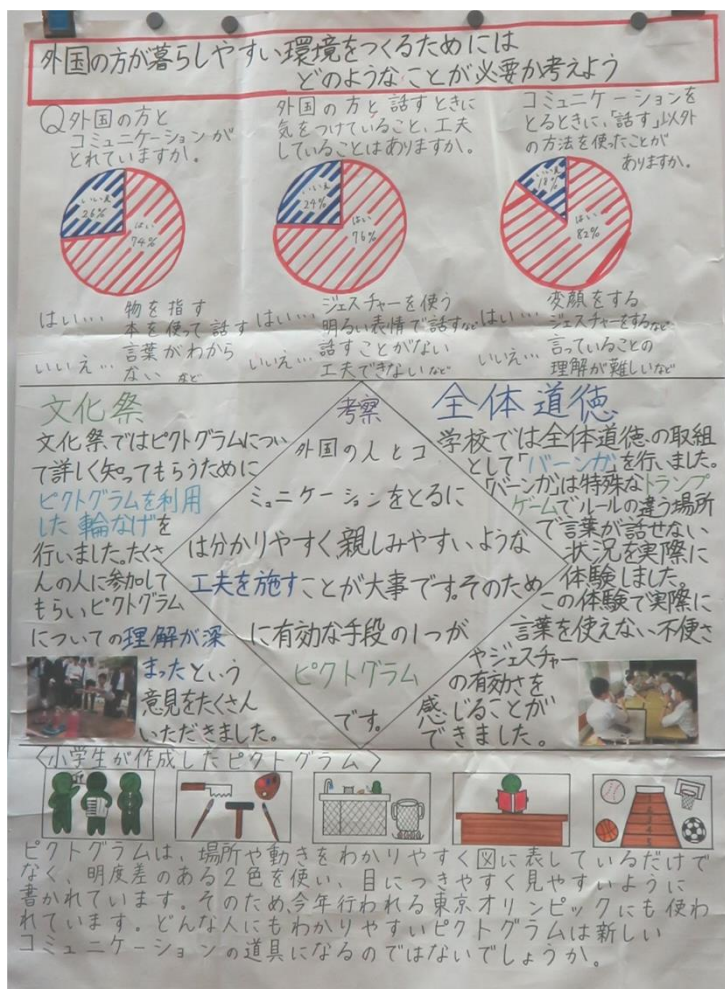 外国の方が暮らしやすい環境をつくるためには
どのようなことが必要か考えよう
Q外国の方と
コミュニケーションが
とれていますか。
いいえ
26%
はい
74%
はい… 物を指す
本を使って話す
いいえ… 言葉がわから
ない など
外国の方と話すときに
気をつけていること、工夫
していることはありますか。
いいえ
24%
はい
76%
はい… ジェスチャーを使う
明るい表情で話すなど
いいえ… 話すことがない
工夫できないなど
コミュニケーションを
とるときに、「話す」以外
の方法を使ったことが
ありますか。
いいえ
18%
はい
82%
はい… 変顔をする
ジェスチャーをするなど
いいえ… 言っていることの
理解が難しいなど
文化祭
文化祭ではピクトグラムについ
て詳しく知ってもらうために
ピクトグラムを利用
した輪なげを
行いました。たくさ
んの人に参加して
もらい、ピクトグラム
についての理解が深
まったという
意見をたくさん
いただきました。
考察
外国の人とコ
ミュニケーションをとるに
は分かりやすく、親しみやすいような
工夫を施すことが大事です。そのため
に有効な手段の1つが
ピクトグラム
です。
全体道徳
学校では全体道徳の取組
として「バーンガ」を行いました。
「バーンガ」は特殊なトランプ
ゲームでルールの違う場所
で言葉が話せない
状況を実際に
体験しました。
この体験で実際に
言葉を使えない不便さ
やジェスチャー
の有効さを
感じることが
できました。
〈小学生が作成したピクトグラム〉
ピクトグラムは、場所や動きをわかりやすく図に表しているだけで
なく、明度差のある2色を使い、目につきやすく見やすいように
書かれています。そのため、今年行われる東京オリンピックにも使わ
れています。どんな人にもわかりやすいピクトグラムは新しい
コミュニケーションの道具になるのではないでしょうか。